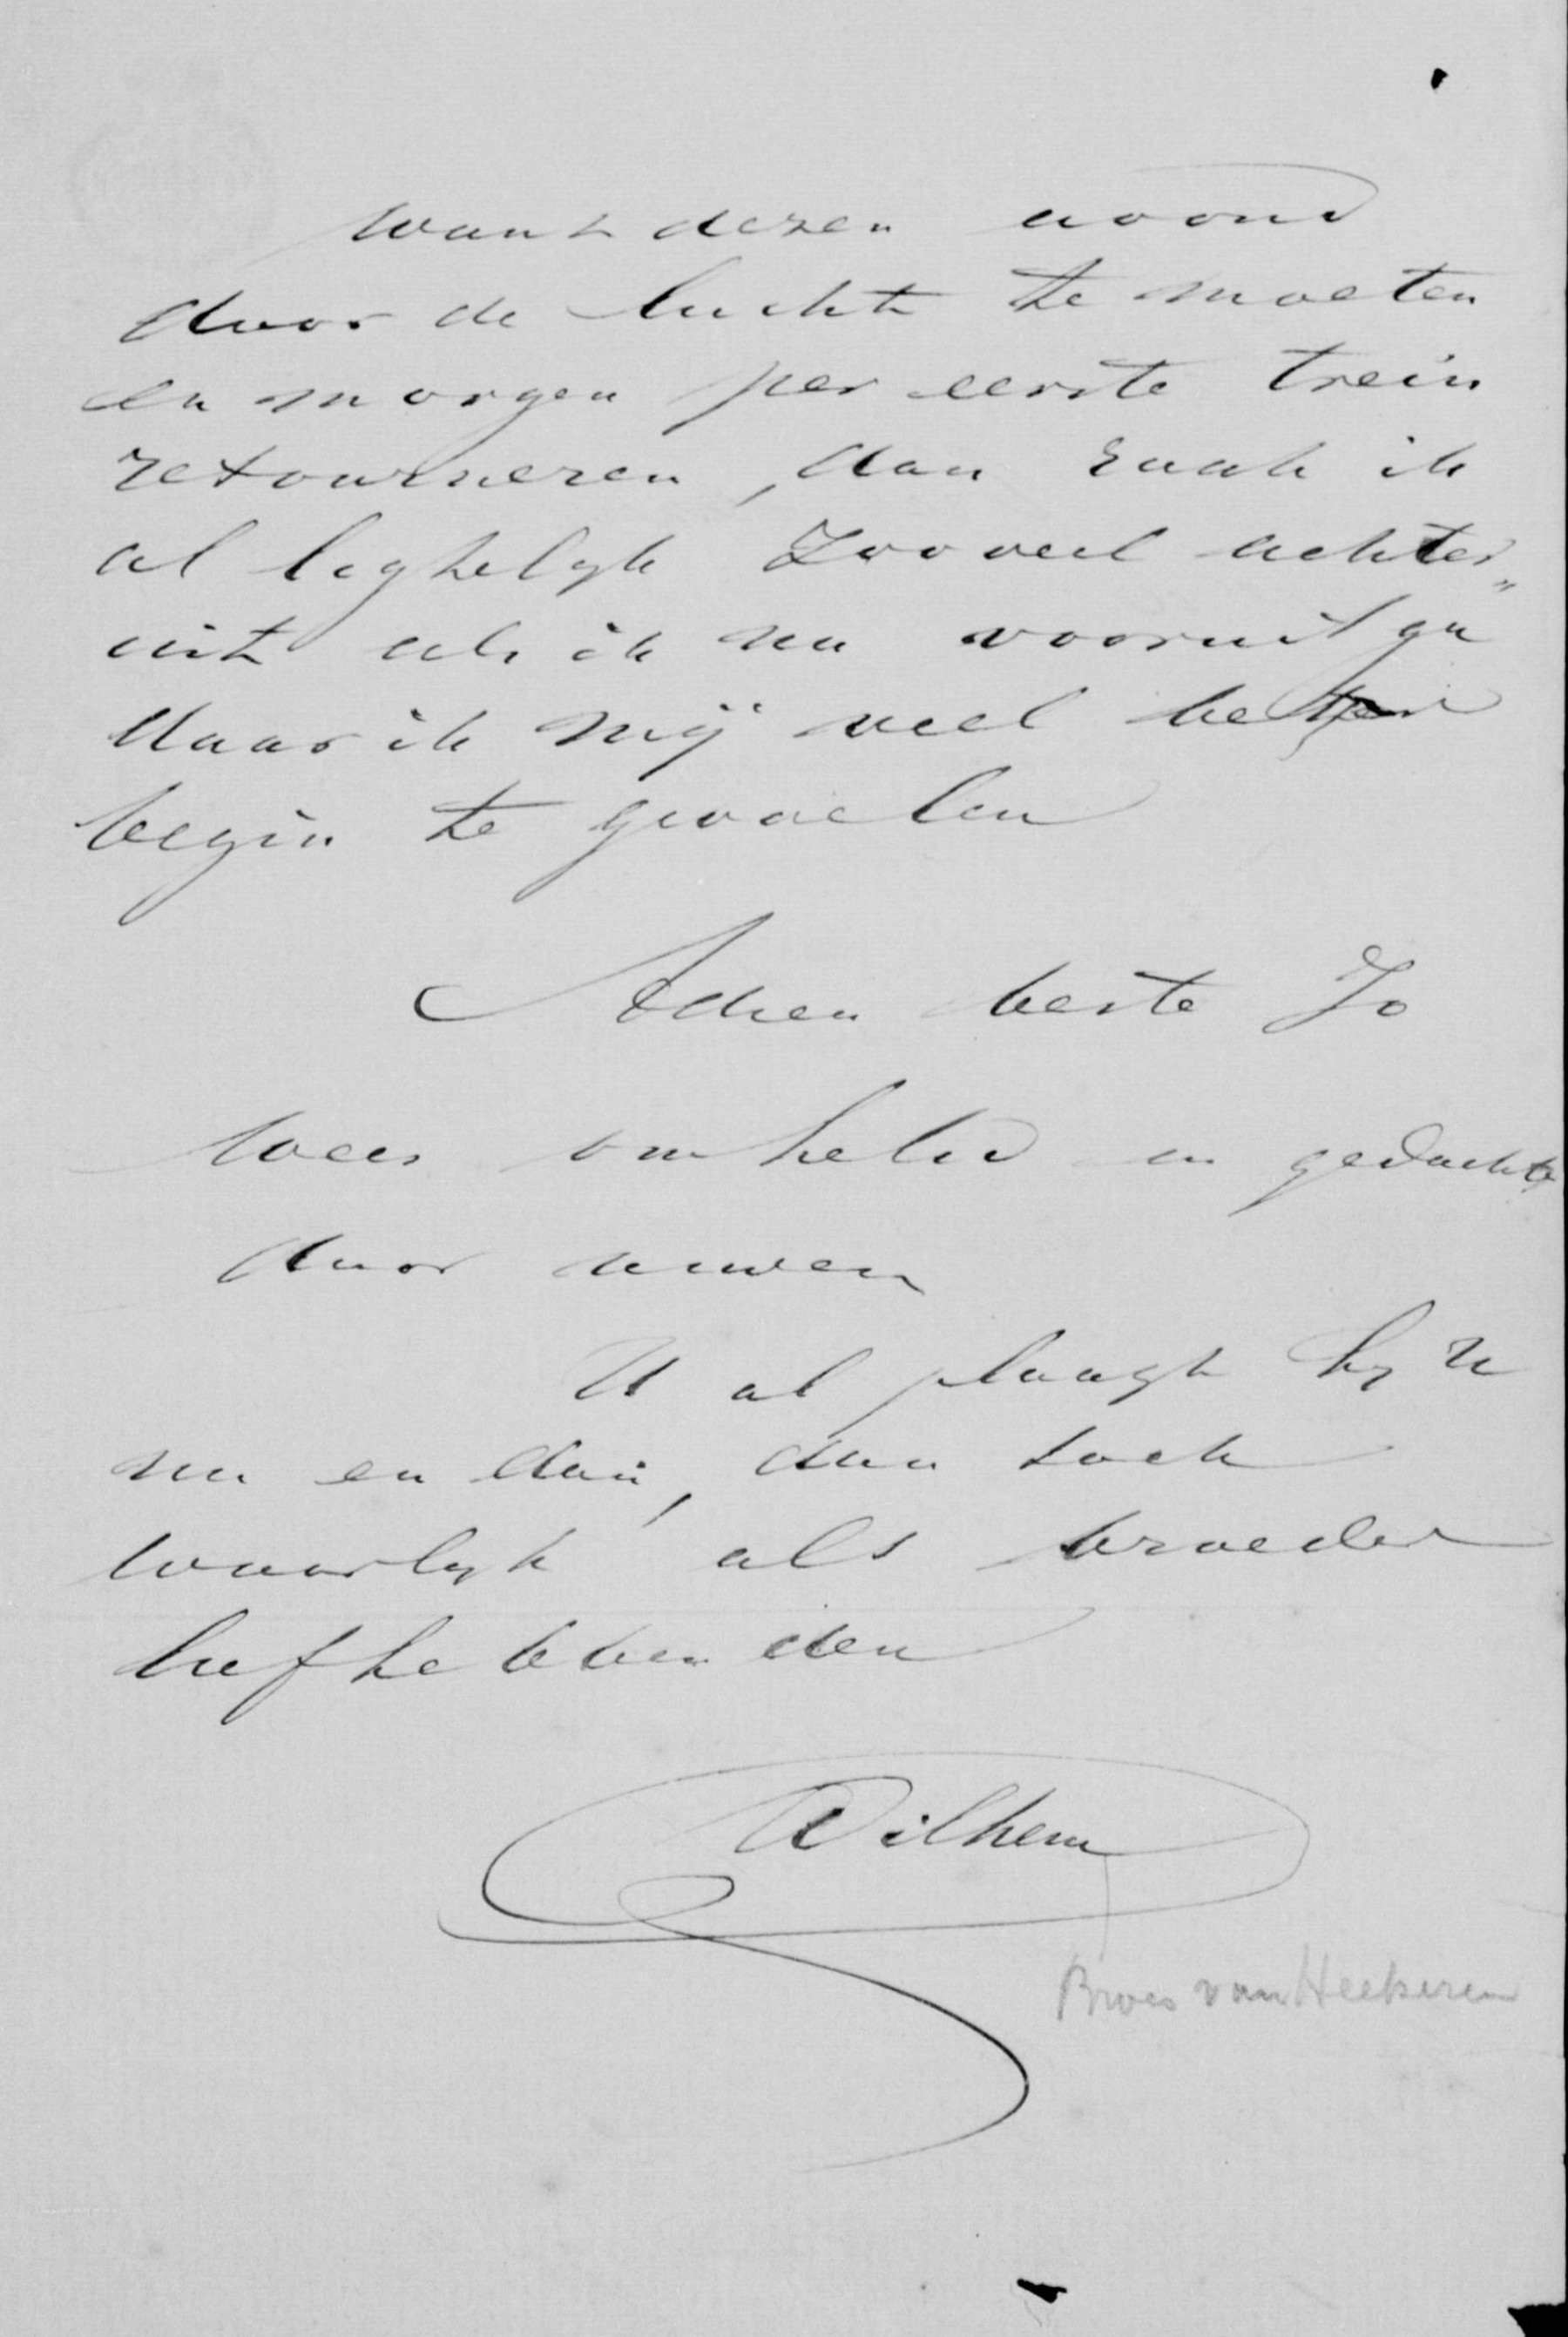 want dezen avond
door de lucht te moeten
en morgen per eerste trein
retourneren, dan raak ik
al ligtelyk zooveel achter„
uit als ik nu vooruit ga
daar ik mij veel beter
begin te gevoelen
Adieu beste Jo
Wees omhelsd en gedachte
door uwen
U al plaagt hy U
nu en dan, dan toch
waarlyk als broeder
liefhebbenden
Wilhem
Broes van Heekeren